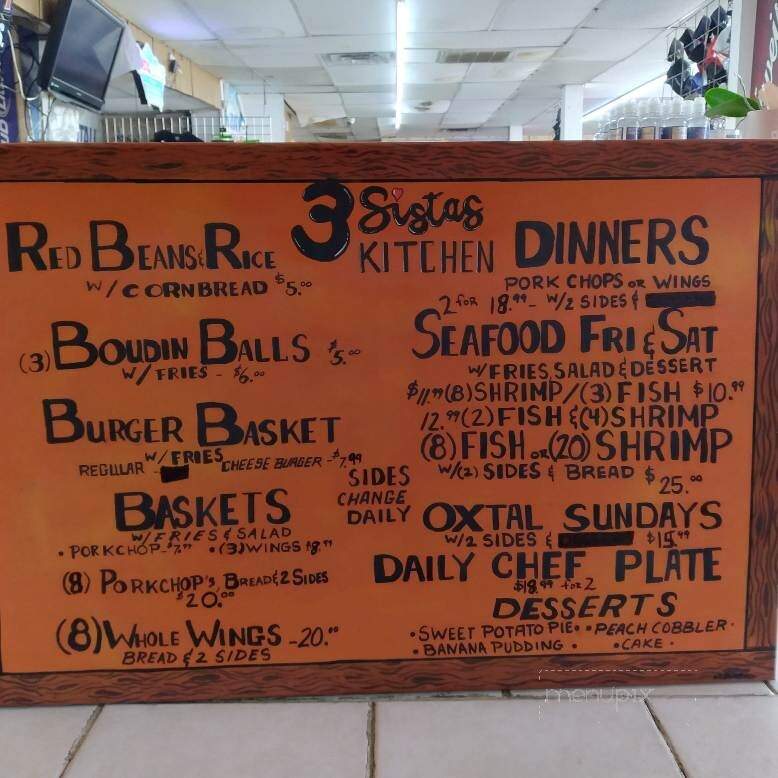 3 Sistas
KITCHEN
RED BEANS & RICE
W/ CORNBREAD $5.00
(3) BOUDIN BALLS $5.00
W/ FRIES - $6.00
BURGER BASKET
W/ FRIES
REGULAR - CHEESE BURGER - $7.99
BASKETS
W/ FRIES & SALAD
• PORKCHOP - $7.99 • (3) WINGS $8.99
(8) PORKCHOP'S, BREAD & 2 SIDES
$20.00
(8) WHOLE WINGS - 20.00
BREAD & 2 SIDES
SIDES
CHANGE
DAILY
DINNERS
PORK CHOPS OR WINGS
2 for 18.99 - W/2 SIDES &
SEAFOOD FRI & SAT
W/ FRIES, SALAD & DESSERT
$11.99 (8) SHRIMP / (3) FISH $10.99
12.99 (2) FISH & (4) SHRIMP
(8) FISH OR (20) SHRIMP
W/(2) SIDES & BREAD $25.00
OXTAL SUNDAYS
W/2 SIDES &
DAILY CHEF PLATE
$18.99 for 2
DESSERTS
• SWEET POTATO PIE • • PEACH COBBLER •
• BANANA PUDDING • • CAKE •
menupix